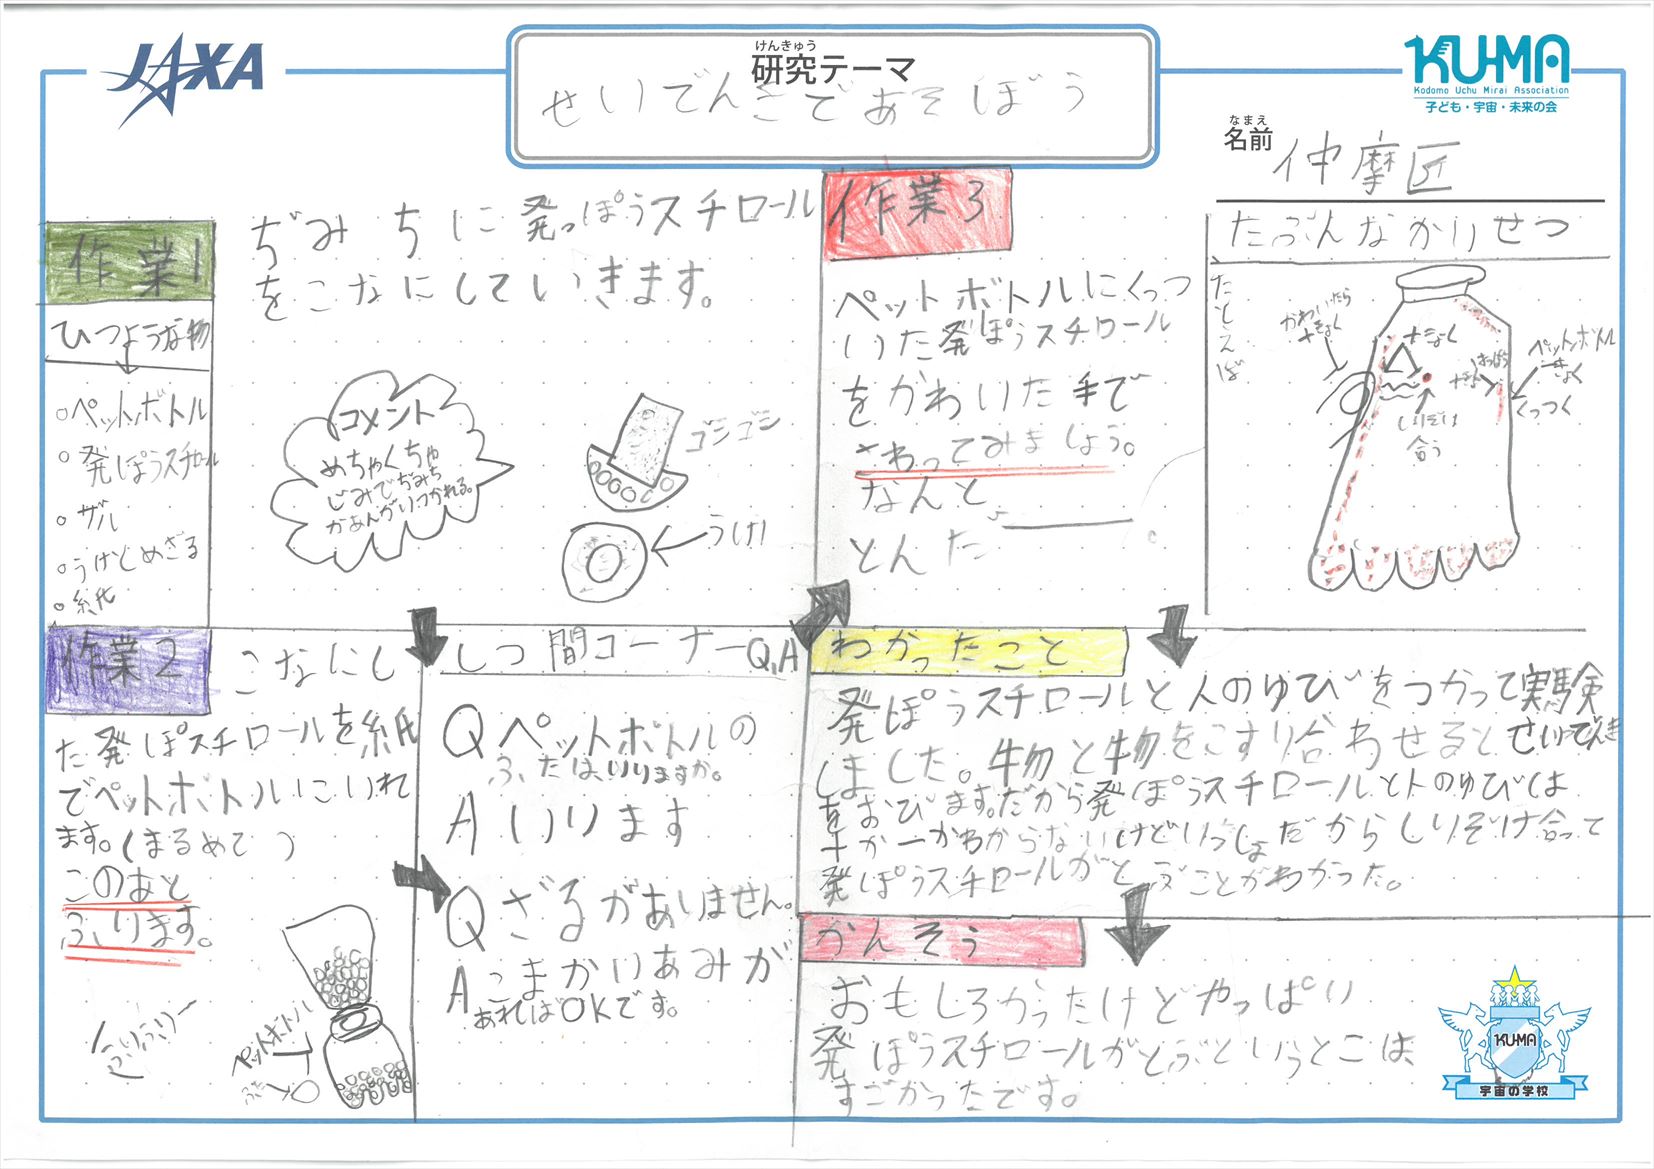 JAXA
けんきゅう
研究テーマ
せいでんきであそぼう
KU-MA
Kodomo Uchu Mirai Association
子ども・宇宙・未来の会
なまえ
名前
仲摩匠
作業1
ぢみちに発っぽうスチロール
をこなにしていきます。
ひつような物
○ペットボトル
○発ぽうスチロール
○ザル
○うけとめざる
○紙
コメント
めちゃくちゃ
じみでぢみち
かあんがいつかれる。
ゴシゴシ
うけ
作業2
こなにし
た発ぽスチロールを紙
でペットボトルにいれ
ます。(まるめて)
このあと
ふります。
ペットボトル
ふた
OK
しつ間コーナーQ,A
Qペットボトルの
ふたはいりますか。
Aいります
Qざるがありません。
Aこまかいあみが
あればOKです。
作業3
ペットボトルにくっつ
いた発ぽうスチロール
をかわいた手で
さわってみましょう。
なんと
とんだ
たぶんなかせつ
たとえば
かわいたら
+きょく
+きょく
しりぞけ
合う
ペットボトル
きょく
くっつく
わかったこと
発ぽうスチロールと人のゆびをつかって実験
しました。物と物をこすり合わせるとせいでんき
をおびます。だから発ぽうスチロールと人のゆびは
+かーかわからないけどいっしょだからしりぞけ合って
発ぽうスチロールがとぶことがわかった。
かんそう
おもしろかったけどやっぱり
発ぽうスチロールがとぶというとこは、
すごかったです。
KU-MA
宇宙の学校